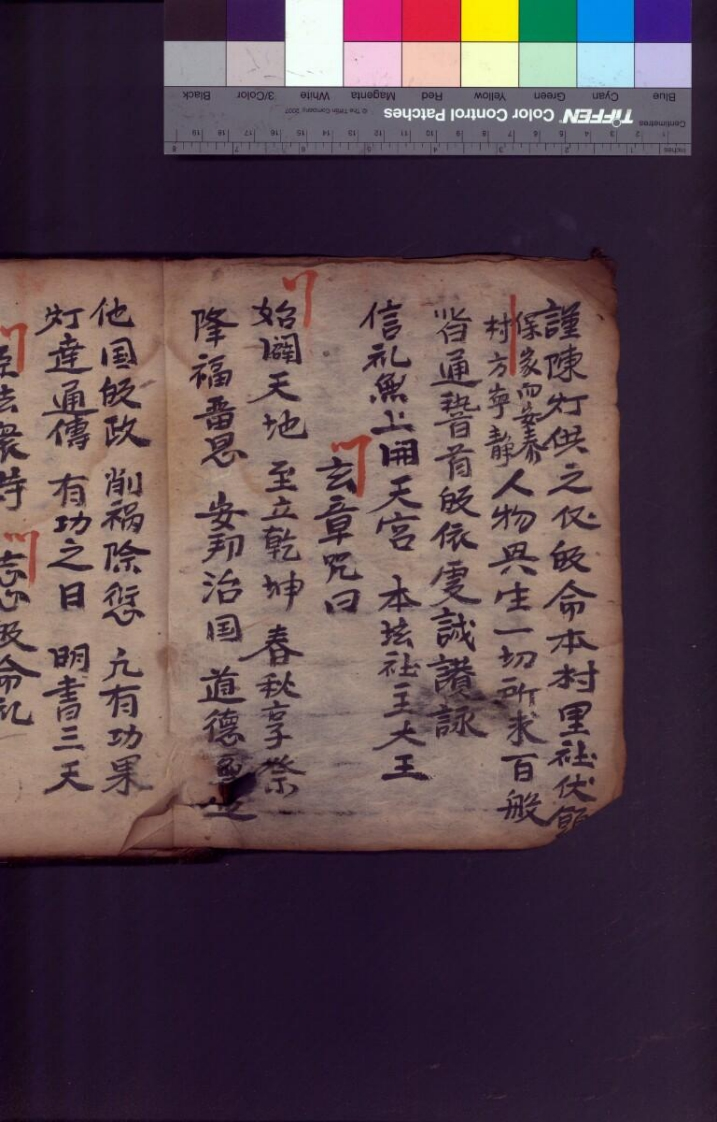 Blue Cyan Green Yellow Red Magenta White 3/Color Black
Centimetres TIFFEN Color Control Patches © The Tiffen Company, 2007
Inches
謹陳灯供之仪皈命本村里社伏願
保家門安泰
村方寧静
人物興生一切所求百般
皆通稽首皈依虔誠讃詠
信礼無上開天宮 本坛社王大王
玄章咒曰
始闢天地 至立乾坤 春秋享祭
降福畨恩 安邦治国 道德
他国皈政 削祸除愆 凢有功果
灯達通傳 有功之日 明書三天
法衆持
志心皈命礼